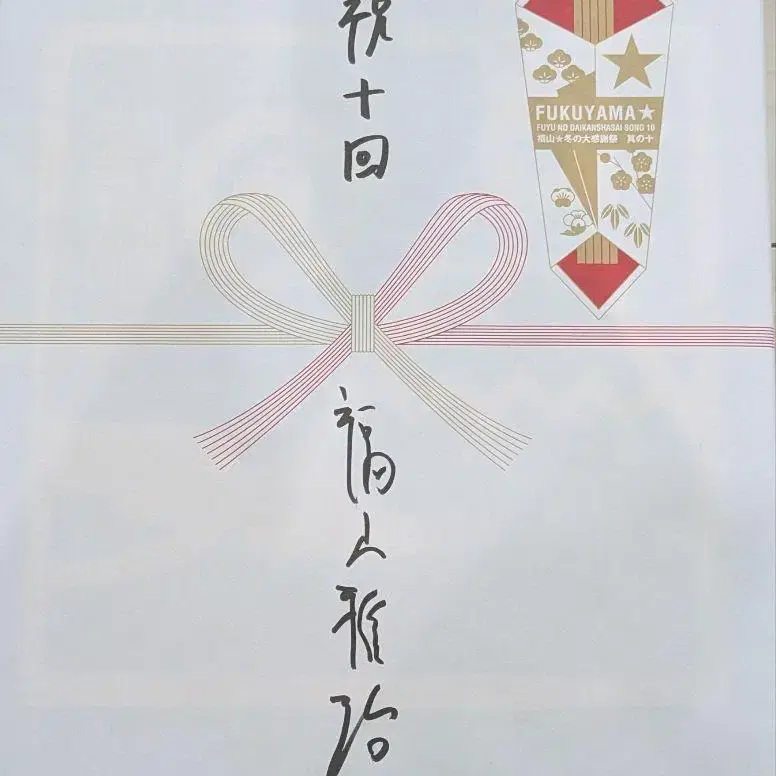 祝十回
FUKUYAMA★
FUYU NO DAIKANSHASAI SONO 10
福山★冬の大感謝祭 其の十
福山雅治